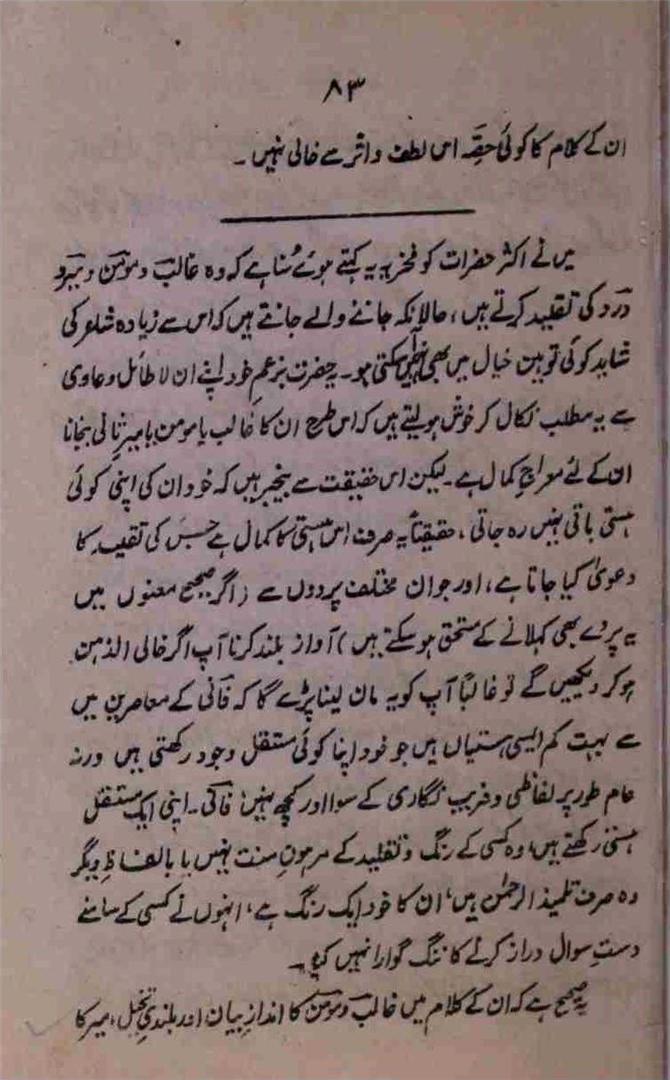 ۸۳
ان کے کلام کا کوئی حصّہ اس لطف و اثر سے خالی نہیں ۔
میں نے اکثر حضرات کو فخریہ یہ کہتے ہوئے سُنا ہے کہ وہ غالب و مومن و میر و
درد کی تقلید کرتے ہیں، حالانکہ جاننے والے جانتے ہیں کہ اس سے زیادہ شاعر کی
شاید کوئی توہین خیال میں بھی نہیں آسکتی ہو۔ یہ حضرت بزعمِ خود اپنے ان لا طائل دعاوی
سے یہ مطلب نکال کر خوش ہو لیتے ہیں کہ اس طرح ان کا غالب یا مومن یا میر ثانی بنجانا
ان کے لئے معراجِ کمال ہے۔ لیکن اس حقیقت سے بیخبر ہیں کہ خود ان کی اپنی کوئی
ہستی باقی نہیں رہ جاتی، حقیقتاً یہ صرف اس ہستی کا کمال ہے جس کی تقلید کا
دعویٰ کیا جاتا ہے، اور جو ان مختلف پردوں سے (اگر صحیح معنوں میں
یہ پردے بھی کہلانے کے مستحق ہو سکتے ہیں) آواز بلند کرتا آپ اگر خالی الذہن
ہو کر دیکھیں گے تو غالباً آپ کو یہ مان لینا پڑے گا کہ فانی کے معاصرین میں
سے بہت کم ایسی ہستیاں ہیں جو خود اپنا کوئی مستقل وجود رکھتی ہیں ورنہ
عام طور پر لفاظی و فریب نگاری کے سوا اور کچھ نہیں، فانی ۔ اپنی ایک مستقل
ہستی رکھتے ہیں، وہ کسی کے رنگ و تقلید کے مرہونِ منت نہیں یا بالفاظِ دیگر
وہ صرف تلمیذ الرحمٰن ہیں، ان کا خود ایک رنگ ہے، انہوں نے کسی کے سامنے
دستِ سوال دراز کرنے کا ننگ گوارا نہیں کیا۔
یہ صحیح ہے کہ ان کے کلام میں غالب و مومن کا اندازِ بیان اور بلندیِ تخیل، میر کا